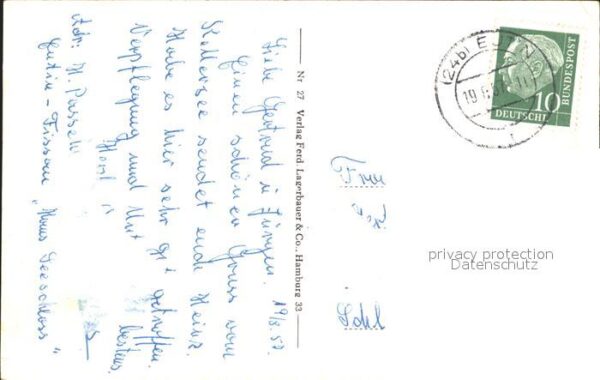 19/8.57
Liebe Gertrud u. Jürgen.
Einen schönen Gruss vom
Kellersee sendet euch Heinz.
Habe es hier sehr gut getroffen.
Verpflegung und
bestens.
Adr: H.
Eutin - Fissau "Haus Seeschloss"
Nr 27 Verlag Ferd. Lagerbauer & Co., Hamburg 33
(24b) EUTIN
10
DEUTSCHE
BUNDESPOST
Frau
privacy protection
Datenschutz